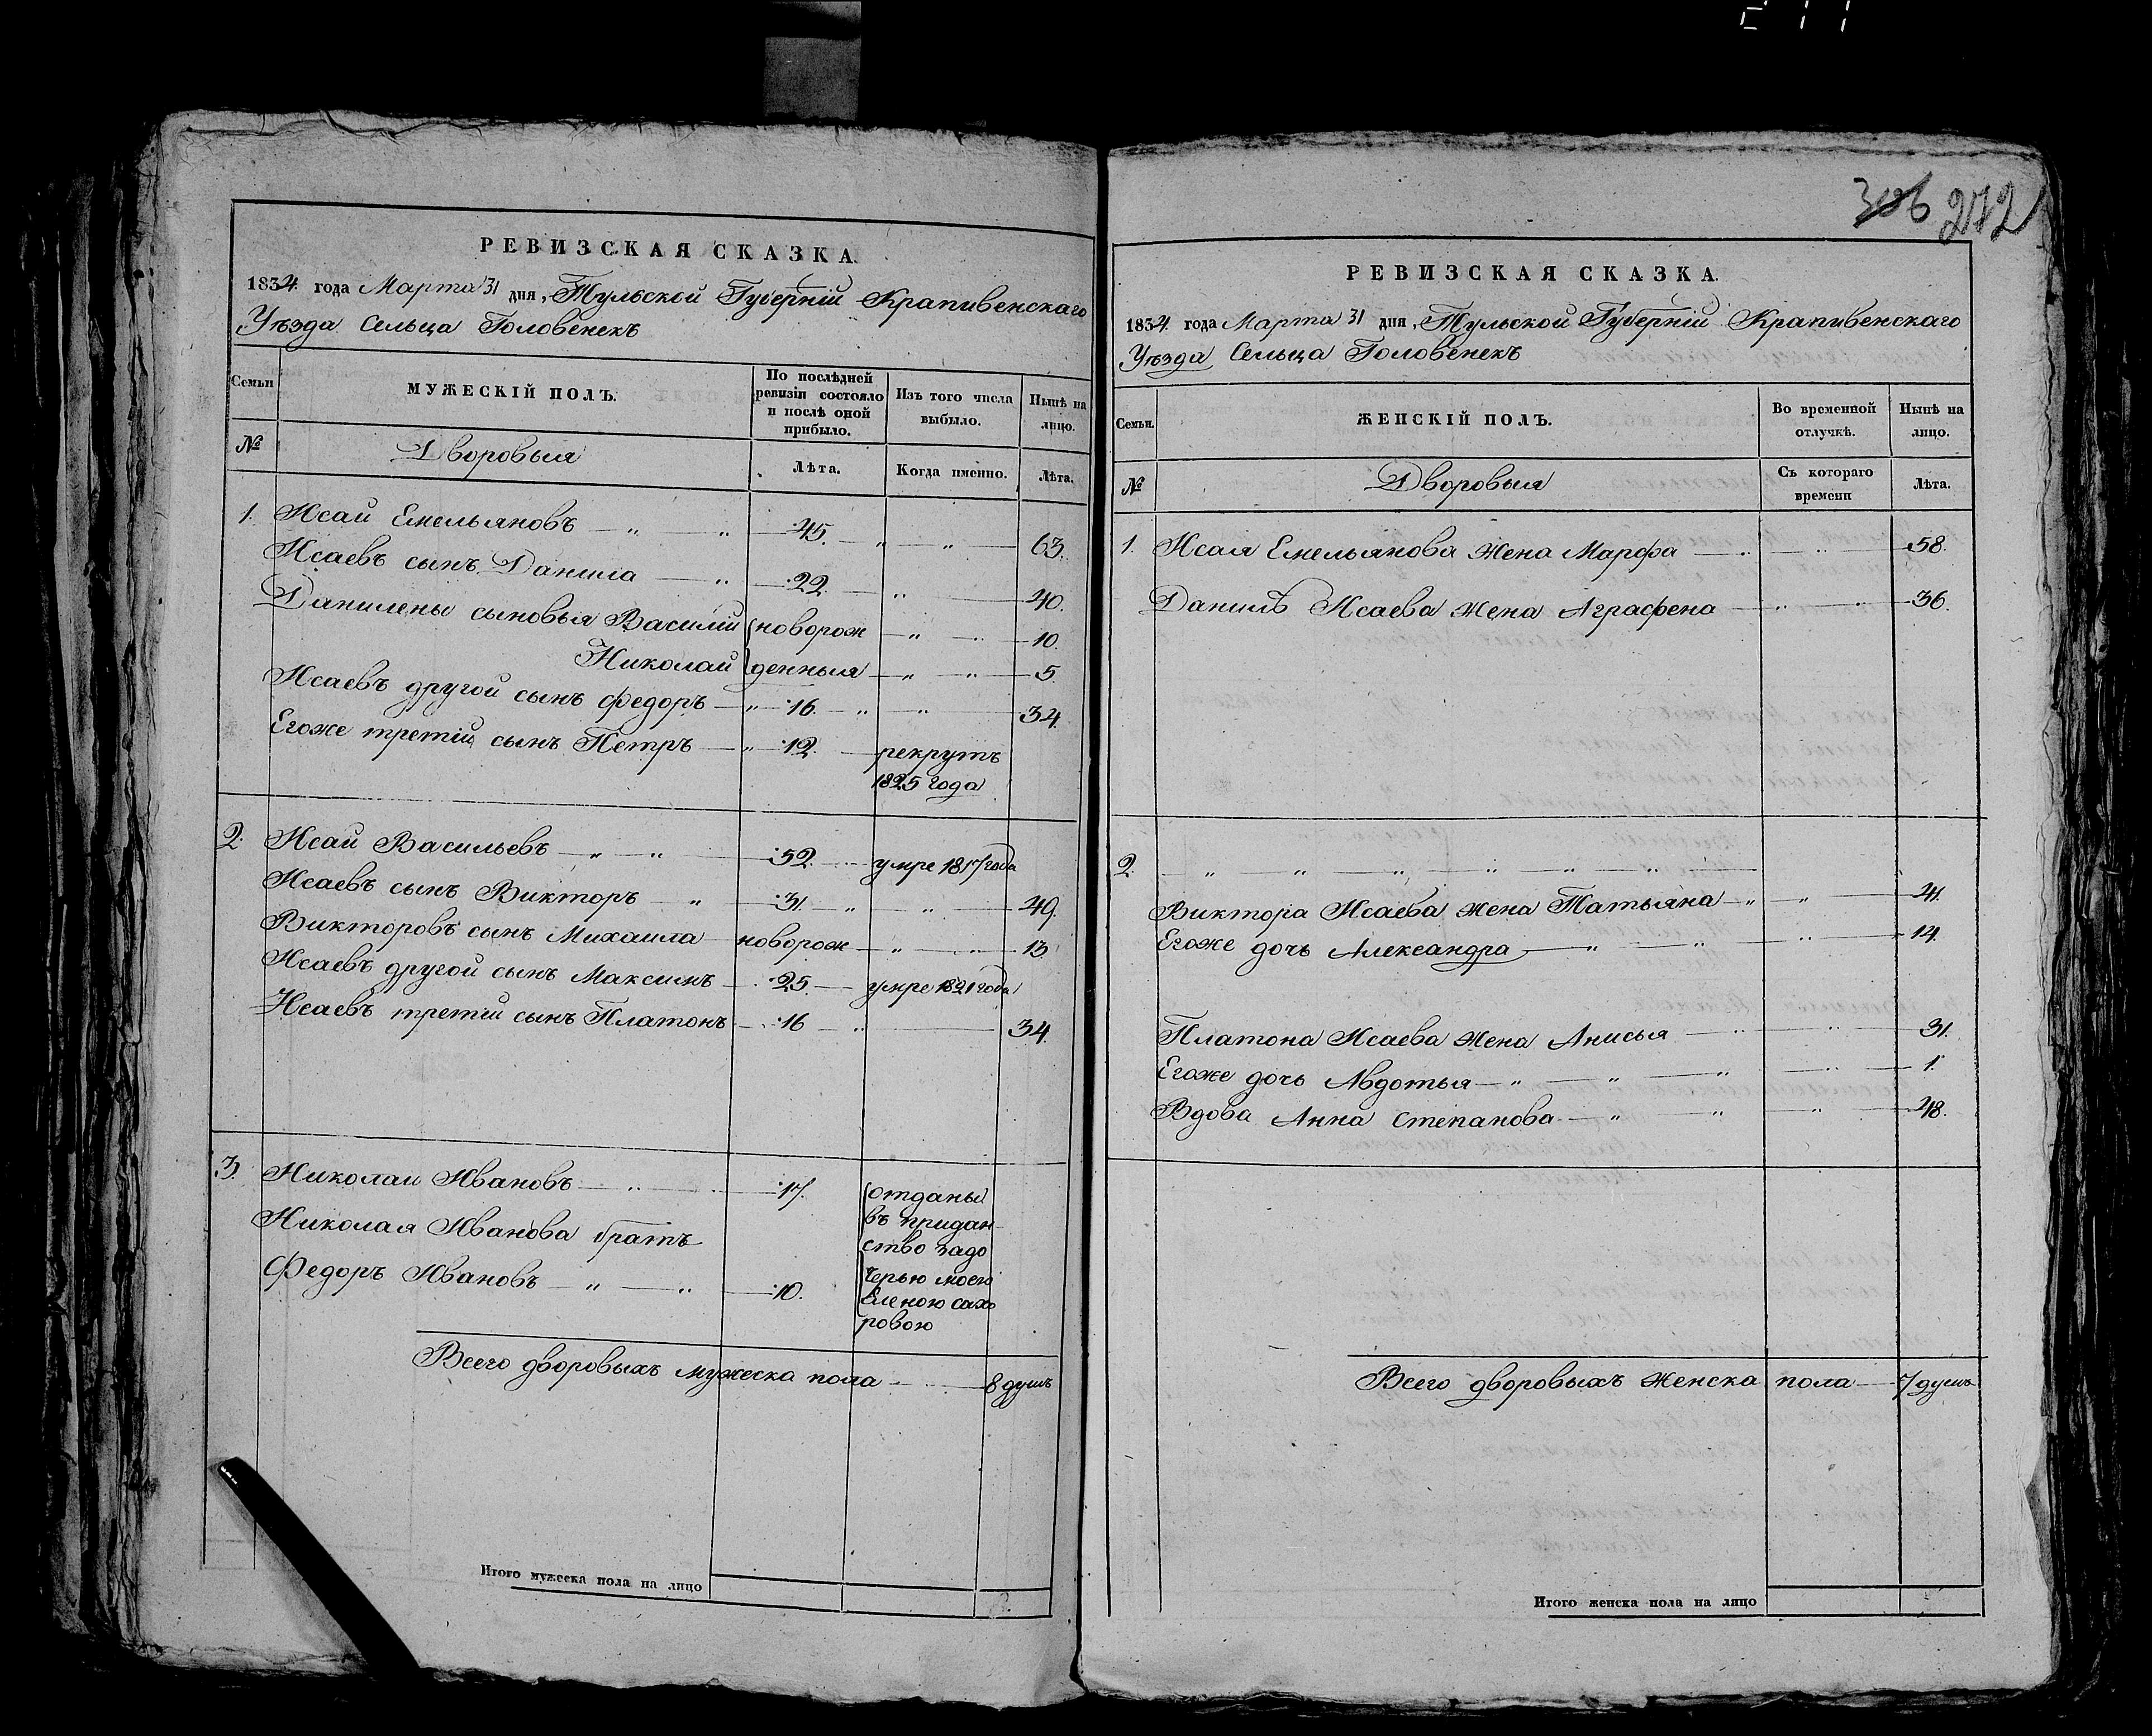 306 272
РЕВИЗСКАЯ СКАЗКА.
1834 года Марта 31 дня, Тульской Губерніи Крапивенскаго
Уѣзда Сельца Головенекъ
Семьи
МУЖЕСКІЙ ПОЛЪ.
По послѣдней ревизіи состояло и послѣ оной прибыло.
Изъ того числа выбыло.
Нынѣ на лицо.
№
Дворовыя
Лѣта.
Когда именно.
Лѣта.
1. Исай Емельяновъ — „ — „ — 45. — „ — „ — 63.
Исаевъ сынъ Данила — „ — 22. — „ — 40.
Данилены сыновья Василий новорож — „ — „ — 10.
Николай денныя — „ — „ — 5.
Исаевъ другой сынъ Федоръ — „ — 16. — „ — „ — 34.
Егоже третий сынъ Петръ — „ — 12. — рекрутъ
1825 года
2. Исай Васильевъ — „ — „ — 52. — умре 1817 года
Исаевъ сынъ Викторъ — „ — 31. — „ — „ — 49.
Викторовъ сынъ Михаила новорож — „ — „ — 13
Исаевъ другой сынъ Максимъ — 25. — умре 1821 года
Исаевъ третий сынъ Платонъ — 16 — „ — 34.
3. Николай Ивановъ — „ — 17. отданы
въ придан-
Николая Иванова братъ ство задо
Федоръ Ивановъ — „ — „ — 10. черью моего
Еленою сахо
ровою
Всего дворовыхъ мужеска пола — 8 душъ
Итого мужеска пола на лицо
РЕВИЗСКАЯ СКАЗКА.
1834 года Марта 31 дня, Тульской Губерніи Крапивенскаго
Уѣзда Сельца Головенекъ
Семьи.
ЖЕНСКІЙ ПОЛЪ.
Во временной отлучкѣ.
Нынѣ на лицо.
№
Дворовыя
Съ котораго времени
Лѣта.
1. Исая Емельянова жена Марфа — „ — „ — 58.
Данилъ Исаева жена Аграфена — „ — „ — 36.
2. — „ — „ — „ — „ — „ — „ —
Виктора Исаева жена Татьяна — „ — „ — 41.
Егоже дочь Александра — „ — „ — „ — 14.
Платона Исаева жена Анисья — „ — „ — 31.
Егоже дочь Авдотья — „ — „ — „ — „ — 1.
Вдова Анна Степанова — „ — „ — „ — 48.
Всего дворовыхъ женска пола — 7 душъ
Итого женска пола на лицо